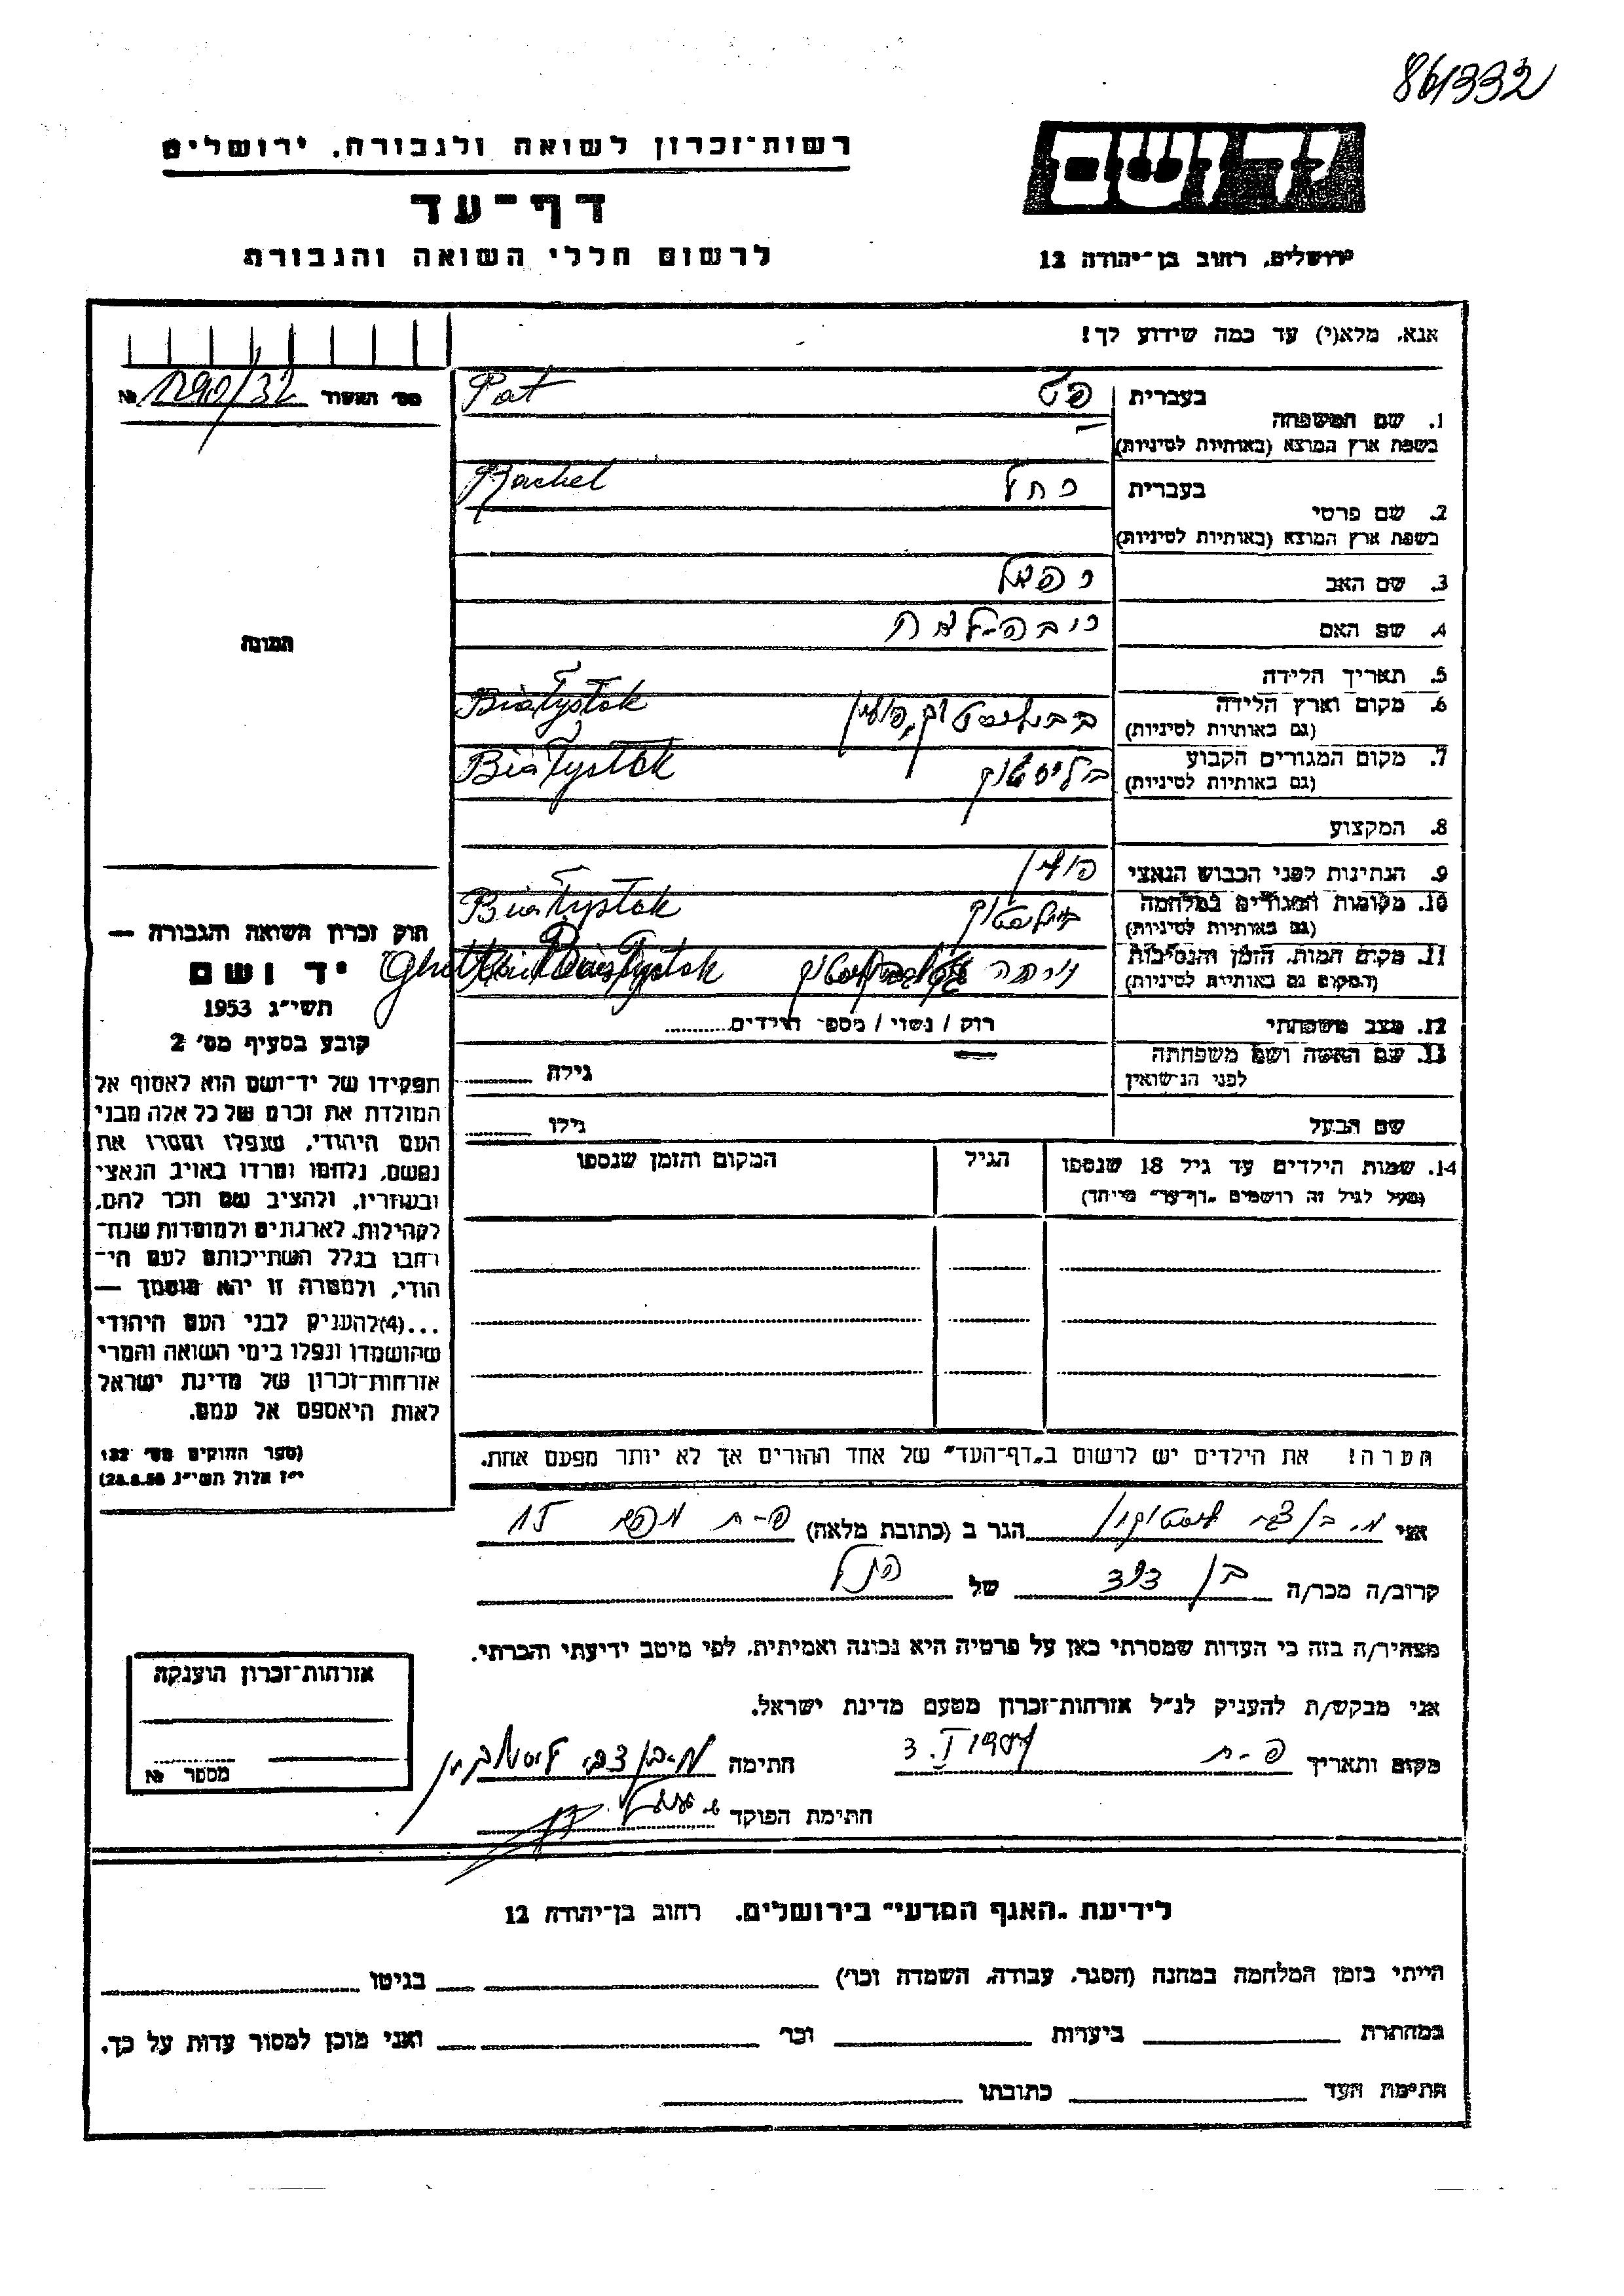 86/332
יד ושם
רשות-זכרון לשואה ולגבורה, ירושלים
דף-עד
לרשום חללי השואה והגבורה
ירושלים, רחוב בן-יהודה 12
אנא, מלא(י) עד כמה שידוע לך!
מס' האשור 1290/32 №
בעברית פט Pat
1. שם המשפחה
בשפת ארץ המוצא (באותיות לטיניות)
בעברית רחל Rachel
2. שם פרטי
בשפת ארץ המוצא (באותיות לטיניות)
3. שם האב רפאל
4. שם האם
תמונה
5. תאריך הלידה
6. מקום וארץ הלידה ביאליסטוק, פולין Białystok
(גם באותיות לטיניות)
7. מקום המגורים הקבוע Białystok
(גם באותיות לטיניות)
8. המקצוע
9. הנתינות לפני הכבוש הנאצי פולין
10. מקומות המגורים במלחמה Białystok
(גם באותיות לטיניות)
11. מקום המות, הזמן והנסיבות Ghetto Białystok
(המקום גם באותיות לטיניות)
12. מצב משפחתי רוק / נשוי / מספר הילדים
13. שם האשה ושם משפחתה גילה
לפני הנישואין
שם הבעל גילו
14. שמות הילדים עד גיל 18 שנספו הגיל המקום והזמן שנספו
(מעל לגיל זה רושמים „דף-עד" מייחד)
הערה! את הילדים יש לרשום ב„דף-העד" של אחד ההורים אך לא יותר מפעם אחת.
חוק זכרון השואה והגבורה —
יד ושם
תשי"ג 1953
קובע בסעיף מס' 2
תפקידו של יד-ושם הוא לאסוף אל
המולדת את זכרם של כל אלה מבני
העם היהודי, שנפלו ומסרו את
נפשם, נלחמו ומרדו באויב הנאצי
ובעוזריו, ולהציב שם וזכר להם,
לקהילות, לארגונים ולמוסדות שנח-
רבו בגלל השתייכותם לעם הי-
הודי, ולמטרה זו יהא מוסמך —
...(4)להעניק לבני העם היהודי
שהושמדו ונפלו בימי השואה והמרי
אזרחות-זכרון של מדינת ישראל
לאות היאספם אל עמם.
(ספר החוקים מס' 132
י"ז אלול תשי"ג 28.8.53)
אני הגר ב (כתובת מלאה) פ-ת 15
קרוב/ה מכר/ה בן דוד של רחל
מצהיר/ה בזה כי העדות שמסרתי כאן על פרטיה היא נכונה ואמיתית, לפי מיטב ידיעתי והכרתי.
אני מבקש/ת להעניק לנ"ל אזרחות-זכרון מטעם מדינת ישראל.
מקום ותאריך פ-ת 3.I 1957 חתימה
חתימת הפוקד
אזרחות-זכרון הוענקה
מספר №
לידיעת „האגף המדעי" בירושלים, רחוב בן-יהודה 12
הייתי בזמן המלחמה במחנה (הסגר, עבודה, השמדה וכו') בגיטו
במחתרת ביערות וכו' ואני מוכן למסור עדות על כך.
חתימת העד כתובתו